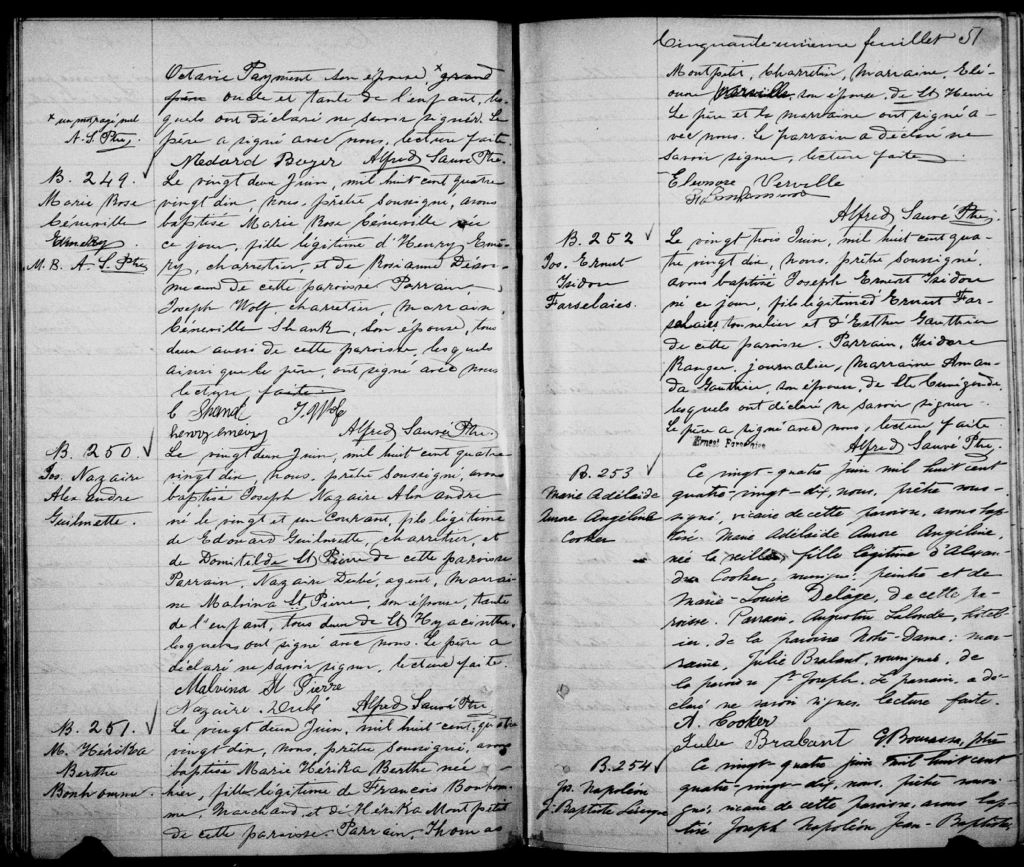 Octavie Payment son épouse, x grand
père oncle et tante de l'enfant, les-
quels ont déclaré ne savoir signer. Le
père a signé avec nous, lecture faite
x un mot rayé nul
A. S. Ptre
Médard Boyer Alfred Sauvé Ptre.
B. 249.
Marie Rose
Céneville
Emery
M. B. A. S. Ptre
Le vingt deux Juin, mil huit cent quatre
vingt dix, nous, prêtre soussigné, avons
baptisé Marie Rose Céneville née
ce jour, fille légitime d'Henry Eme-
ry, charretier, et de Rosianne Désor-
meaux de cette paroisse Parrain,
Joseph Wolf, charretier, marraine,
Céneville Shank, son épouse, tous
deux aussi de cette paroisse, lesquels
ainsi que le père, ont signé avec nous
lecture faite
C Shank J. Wolf
henry emery Alfred Sauvé Ptre.
B. 250.
Jos. Nazaire
Alexandre
Guilmette.
Le vingt deux Juin, mil huit cent quatre
vingt dix, nous, prêtre soussigné, avons
baptisé Joseph Nazaire Alexandre
né le vingt et un courant, fils légitime
de Edouard Guilmette, charretier, et
de Domitilde St Pierre de cette paroisse
Parrain, Nazaire Dubé, agent, marrai-
ne Malvina St Pierre, son épouse, tante
de l'enfant, tous deux de St Hyacinthe,
lesquels ont signé avec nous. Le père a
déclaré ne savoir signer, lecture faite.
Malvina St Pierre
Nazaire Dubé Alfred Sauvé Ptre
B. 251.
M. Hérika
Berthe
Bonhomme.
Le vingt deux Juin, mil huit cent quatre
vingt dix, nous, prêtre soussigné, avons
baptisé Marie Hérika Berthe née
hier, fille légitime de François Bonhom-
me, marchand, et d'Hérika Montpetit
de cette paroisse. Parrain, Thomas
Cinquante-unième feuillet 51
Montpetit, charretier, marraine, Elé-
onore Verville, son épouse, de St Henri
Le père et la marraine ont signé a-
vec nous. Le parrain a déclaré ne
savoir signer, lecture faite
Eleonore Verville
Alfred Sauvé Ptre.
B. 252
Jos. Ernest
Isidore
Farselaies.
Le vingt trois Juin, mil huit cent qua-
tre vingt dix, nous, prêtre soussigné,
avons baptisé Joseph Ernest Isidore
né ce jour, fils légitime d'Ernest Far-
selaies tonnelier et d'Esther Gauthier
de cette paroisse. Parrain, Isidore
Ranger, journalier, marraine Aman-
da Gauthier, son épouse, de Ste Cunégonde,
lesquels ont déclaré ne savoir signer
Le père a signé avec nous, lecture faite.
Ernest
Alfred Sauvé Ptre.
B. 253
Marie Adélaïde
Aurore Angélina
Cooker
Ce vingt-quatre juin mil huit cent
quatre-vingt-dix, nous, prêtre sous-
signé, vicaire de cette paroisse, avons bap-
tisé Marie Adélaïde Aurore Angéline,
née la veille, fille légitime d'Alexan-
dre Cooker, peintre et de
Marie-Louise Delâge, de cette pa-
roisse. Parrain, Augustin Lalonde, hôtel-
ier, de la paroisse Notre-Dame; mar-
raine, Julie Brabant, soussignée, de
la paroisse St Joseph. Le parrain a dé-
claré ne savoir signer. Lecture faite.
A. Cooker
Julie Brabant G Bourassa, ptre
B. 254
Jos. Napoléon
J. Baptiste
Ce vingt-quatre juin mil huit cent
quatre-vingt-dix, nous, prêtre sous-
signé, vicaire de cette paroisse, avons bap-
tisé Joseph Napoléon Jean-Baptiste,